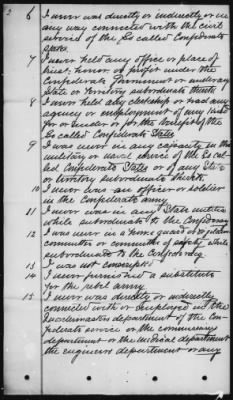 2
6 I never was directly or indirectly or in
any way connected with the civil
service of the So called Confederate
States.
7 I never held any office or place of
trust, honor, or profit under the
Confederate Government or under any
State or Territory subordinate thereto
8 I never held any clerkship or had any
agency or employment of any kind
for or under or for the benefit of the
So called Confederate States
9 I was never in any capacity in the
military or naval service of the So cal-
led Confederate States or of any State
or territory subordinate thereto.
10 I never was an officer or soldier
in the Confederate army
11 I never was in any State militia
while subordinate to the Confederacy
12 I was never in a home guard or vigilance
committee or committee of safety while
subordinate to the Confederacy
13 I was not conscripted
14 I never furnished a substitute
for the rebel army
15 I never was directly or indirectly
connected with or employed in the
Quartermasters department of the Con-
federate service or the commissary
department or the medical department
the engineers department or any